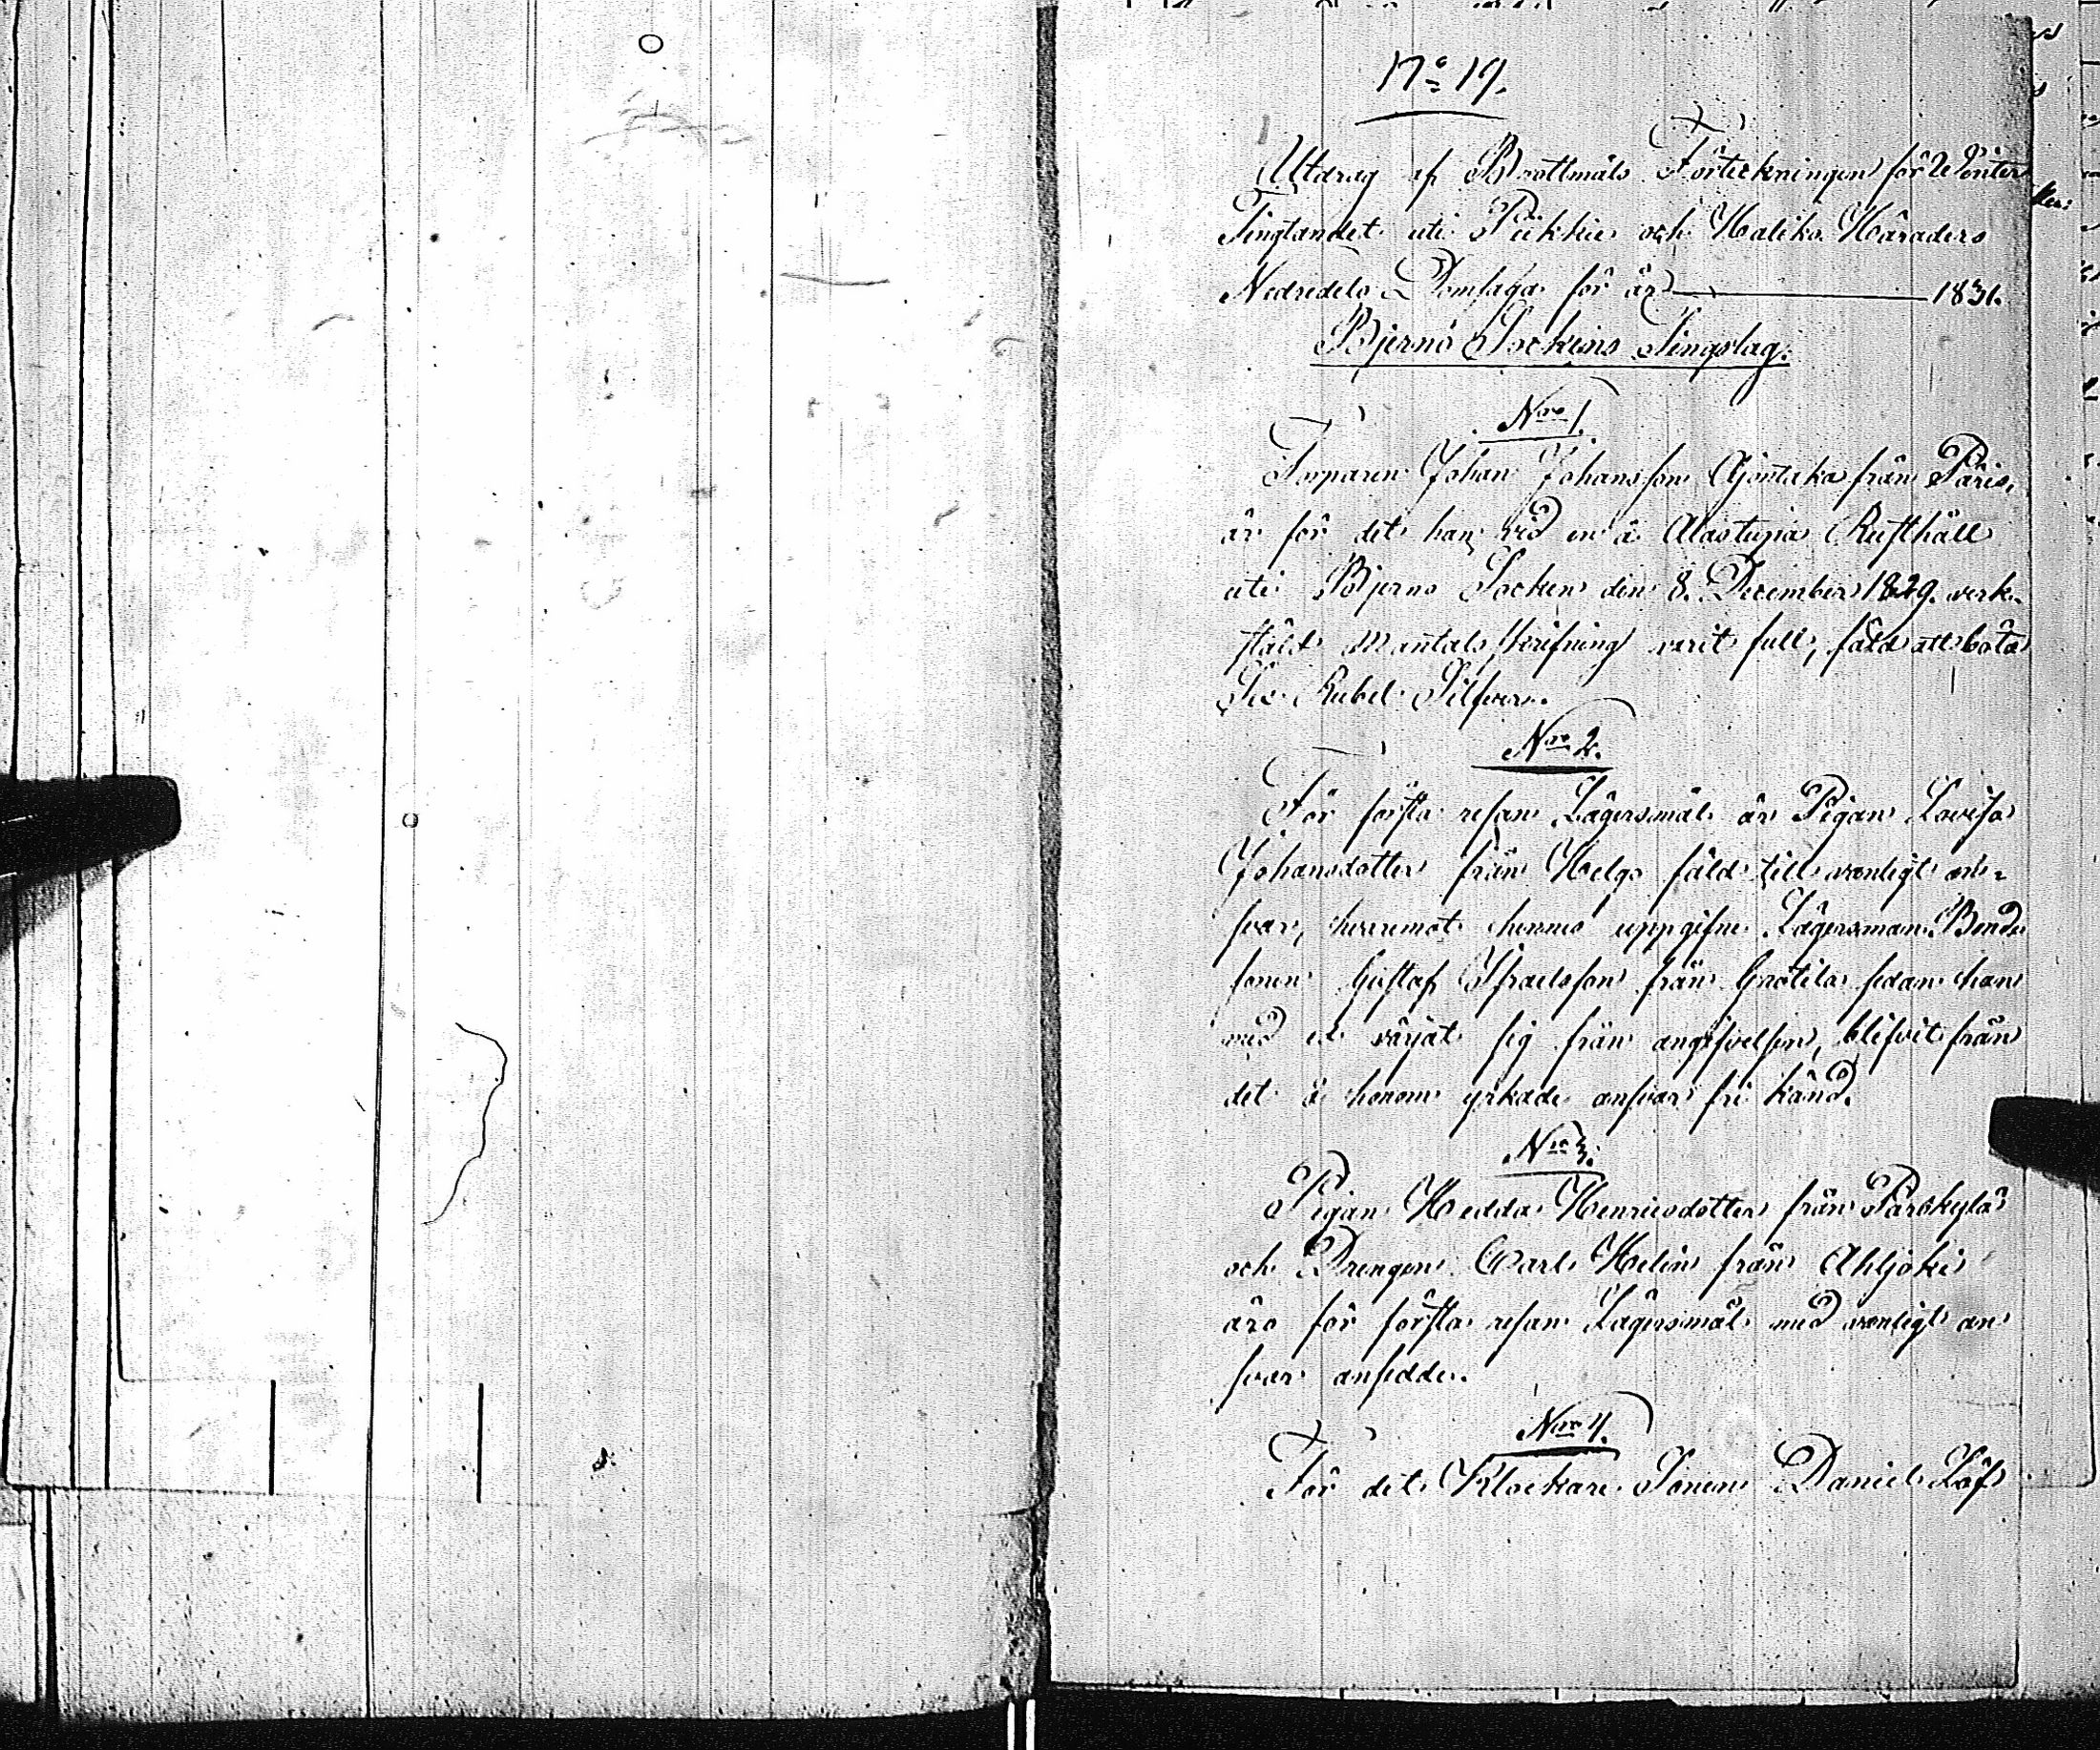 No 19.
Utdrag af Brottmåls Förteckningen för Winter
Tingtandet uti Pikkie och Haliko Härader
Nedredels Domsaga för år 1831.
Bjerno Sockens Tingslag.
Nro 1.
Torparen Johan Johansson Ajontaka från Pâris,
är för det han vid en å Alastupa Rusthåll
uti Bjerno Socken den 8. December 1829. verk-
ställd Mantals skrifning varit full, fäld att böta
Sex Rubel Silfver.
Nro 2.
För första resan Lägersmål är Pigan Lovisa
Johansdotter från Helgo fäld till vanligt an-
svar, hvaremot hennes uppgifne Lägersman Bonde
sonen Gustaf Israelsson från Grotila sedan han
med ed värjat sig från angifvelsen, blifvit från
det å honom yrkade ansvar fri känd.
Nro 3.
Pigan Hedda Henricsdotter från Pârskylä
och Drengen Carl Helin från Ahljoki
äro för första resan Lägersmål med vanligt an
svar ansedde.
Nro 4.
För det Klockare Sonen Daniel Löf